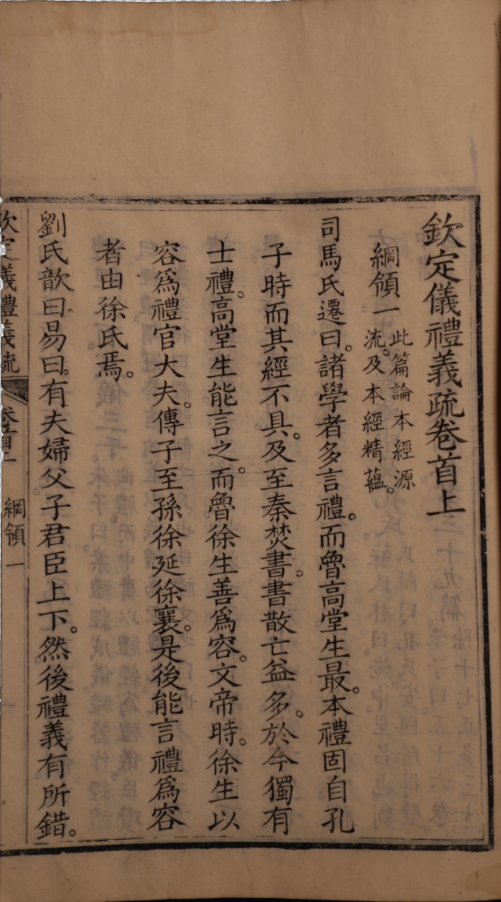 欽定儀禮義疏卷首上
綱領一 此篇論本經源
流。及本經精蘊。
司馬氏遷曰。諸學者多言禮。而魯高堂生最。本禮固自孔
子時而其經不具。及至秦焚書。書散亡益多。於今獨有
士禮。高堂生能言之。而魯徐生善爲容。文帝時。徐生以
容爲禮官大夫。傳子至孫徐延徐襄。是後能言禮爲容
者由徐氏焉。
劉氏歆曰。易曰。有夫婦父子君臣上下。然後禮義有所錯。
欽定儀禮義疏 卷首上 綱領一